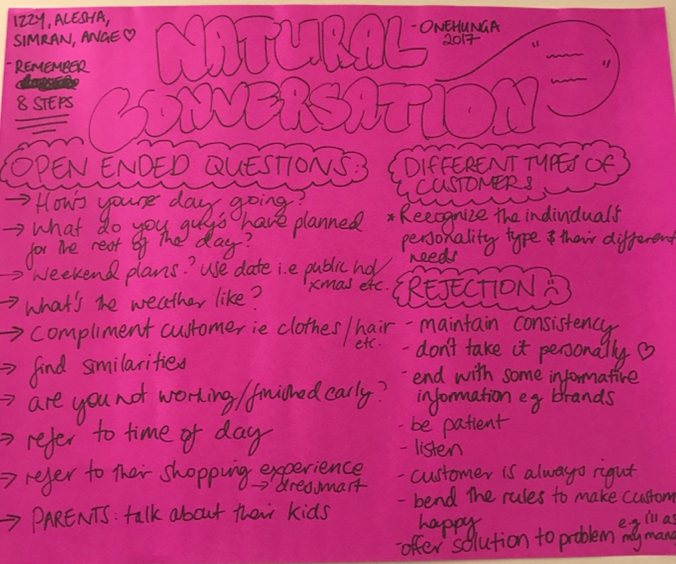 IZZY, ALESHA,
SIMRAN, ANGE ♡
- REMEMBER
8 STEPS
NATURAL
CONVERSATION
- ONEHUNGA
2017
OPEN ENDED QUESTIONS:
→ How's youre day going?
→ What do you guys have planned
for the rest of the day?
→ weekend plans? Use date i.e public hol/
xmas etc.
→ what's the weather like?
→ Compliment customer ie clothes/hair
etc.
→ find similarities
→ are you not working/finished early?
→ refer to time of day
→ refer to their shopping experience
→ dressmart
→ PARENTS: talk about their kids
DIFFERENT TYPES OF
CUSTOMERS
* Recognize the individuals
personality type & their different
needs
REJECTION ☹
- maintain consistency
- don't take it personally ♡
- end with some informative
information eg brands
- be patient
- listen
- customer is always right
- bend the rules to make custom
happy
- offer solution to problem e.g i'll as
my mana